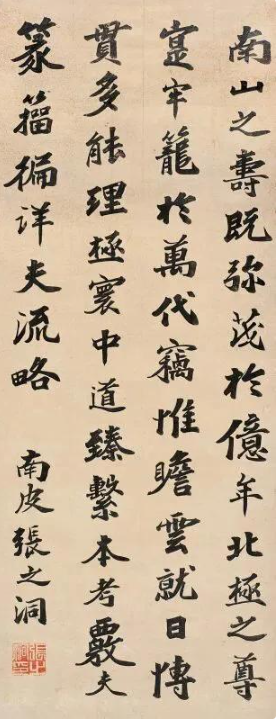 南山之壽既弥茂於億年北極之尊
寔牢籠於萬代竊惟瞻雲就日博
貫多能理極寰中道臻繫本考覈夫
篆籀徧詳夫流略
南皮張之洞